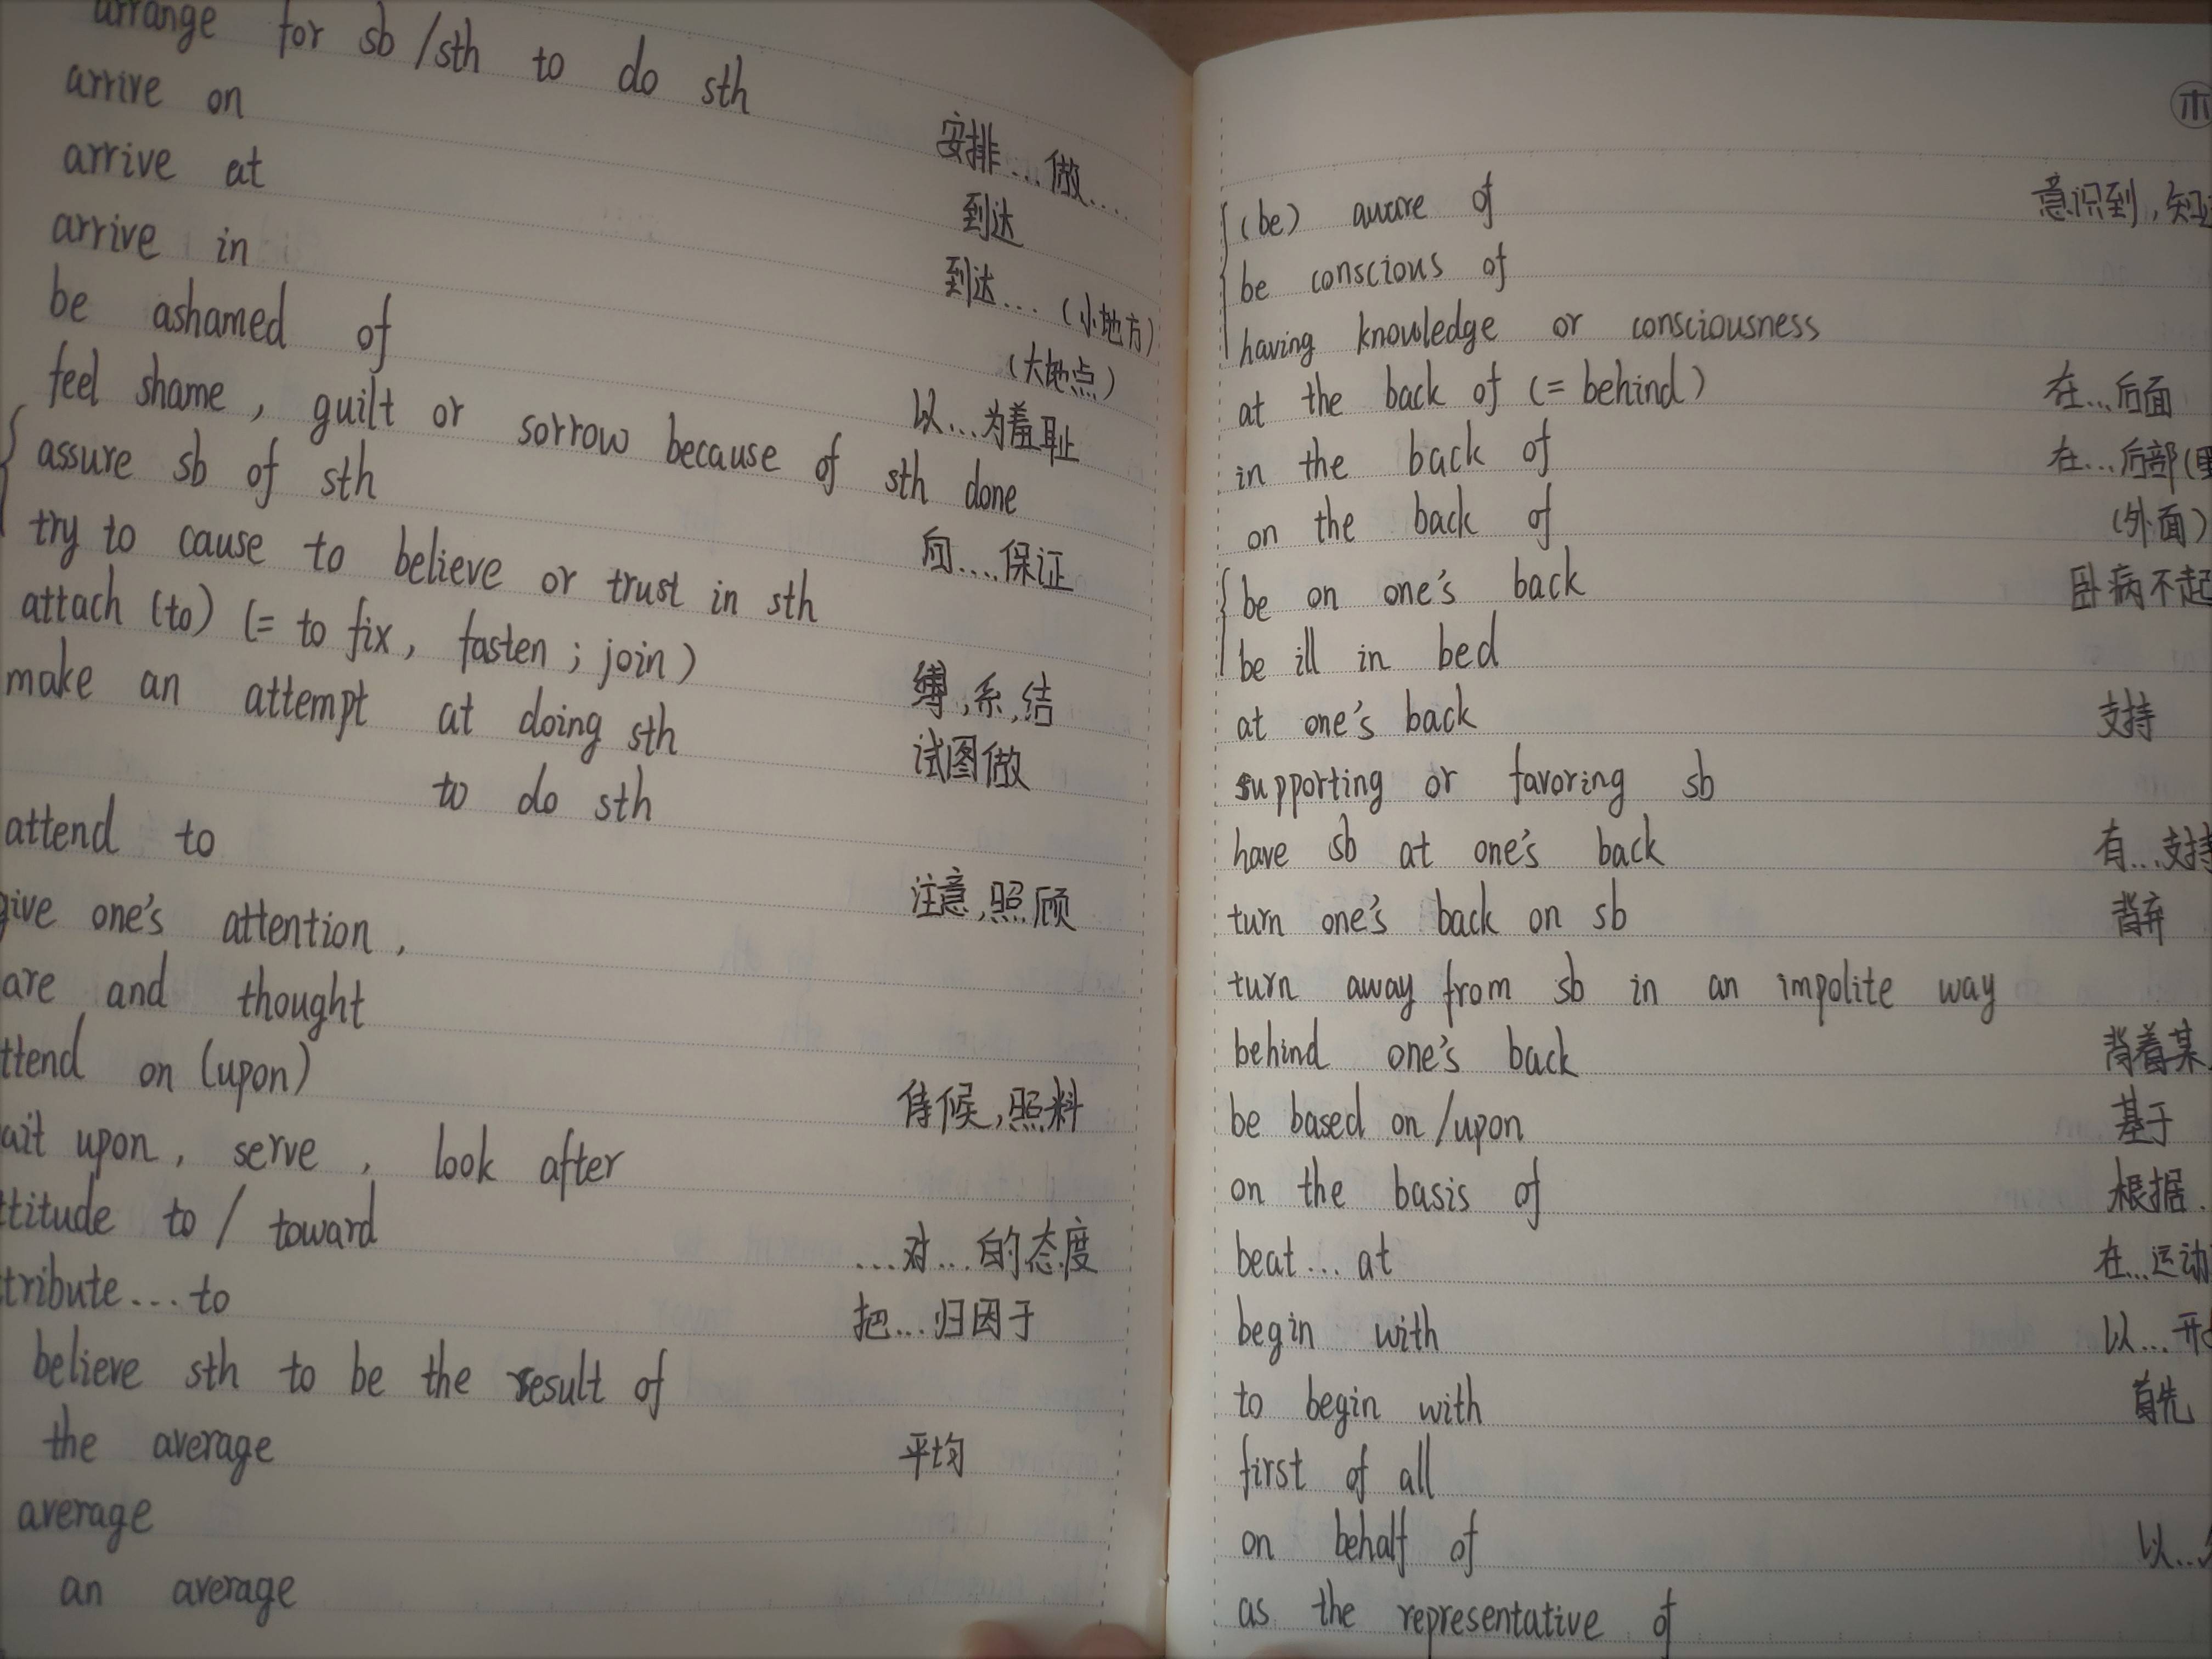 arrange for sb /sth to do sth 安排...做....
arrive on 到达
arrive at 到达... (小地方)
arrive in (大地点)
be ashamed of 以...为羞耻
feel shame, guilt or sorrow because of sth done
assure sb of sth 向....保证
try to cause to believe or trust in sth
attach (to) (= to fix, fasten; join) 缚,系,结
make an attempt at doing sth 试图做
to do sth
attend to 注意,照顾
give one's attention,
are and thought
ttend on (upon) 侍候,照料
ait upon, serve, look after
ttitude to / toward ...对...的态度
tribute...to 把...归因于
believe sth to be the result of
the average 平均
average
an average
(be) aware of 意识到,知
be conscious of
having knowledge or consciousness
at the back of (= behind) 在...后面
in the back of 在...后部(
on the back of (外面)
be on one's back 卧病不起
be ill in bed
at one's back 支持
supporting or favoring sb
have sb at one's back 有...支持
turn one's back on sb 背弃
turn away from sb in an impolite way
behind one's back 背着某
be based on /upon 基于
on the basis of 根据.
beat... at 在...运动
begin with 以...开
to begin with 首先
first of all
on behalf of 以...
as the representative of